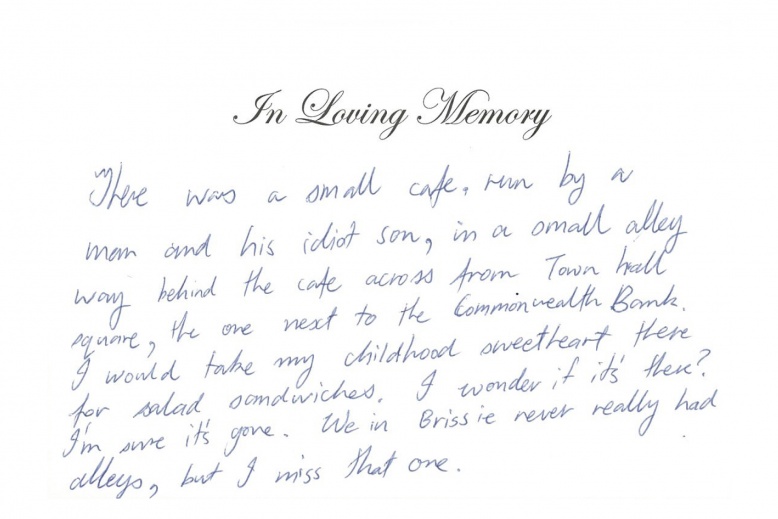 In Loving Memory
There was a small cafe, run by a
man and his idiot son, in a small alley
way behind the cafe across from Town hall
square, the one next to the Commonwealth Bank.
I would take my childhood sweetheart there
for salad sandwiches. I wonder if it's there?
I'm sure it's gone. We in Brissie never really had
alleys, but I miss that one.